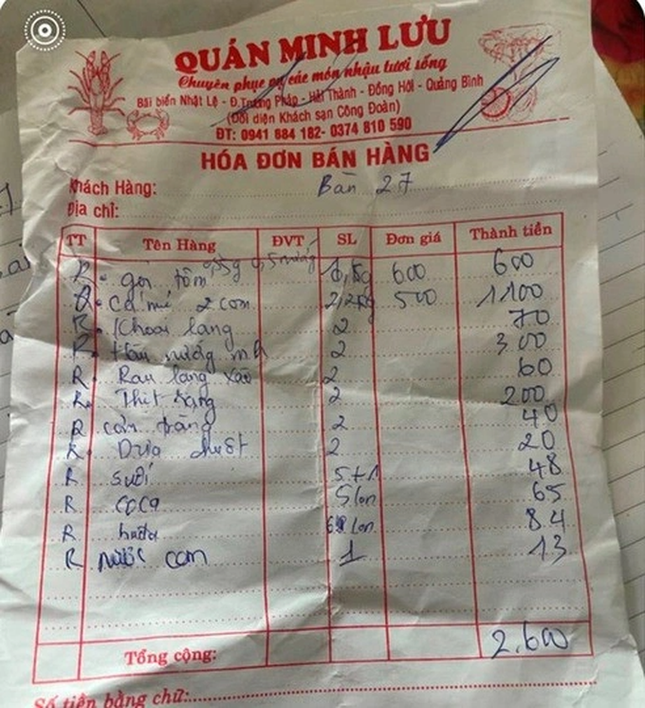 QUÁN MINH LƯU
Chuyên phục vụ các món nhậu tươi sống
Bãi biển Nhật Lệ - Đ.Trương Pháp - Hải Thành - Đồng Hới - Quảng Bình
(Đối diện Khách sạn Công Đoàn)
ĐT: 0941 884 182- 0374 810 590
HÓA ĐƠN BÁN HÀNG
Khách Hàng: Bàn 27
Địa chỉ:
TT Tên Hàng ĐVT SL Đơn giá Thành tiền
R gỏi tôm 0,5 nướng 600 600
cá mú 2 con 2,2kg 500 1100
R Khoai lang 2 70
R Hàu nướng mh 2 300
R Rau lang xào 2 60
R Thịt rang 2 200
R cơm trắng 2 40
R Dưa chuột 2 20
R suối 5+1 48
R coca 5 lon 65
R huda lon 84
R nước cam 1 13
Tổng cộng: 2.600
Số tiền bằng chữ: